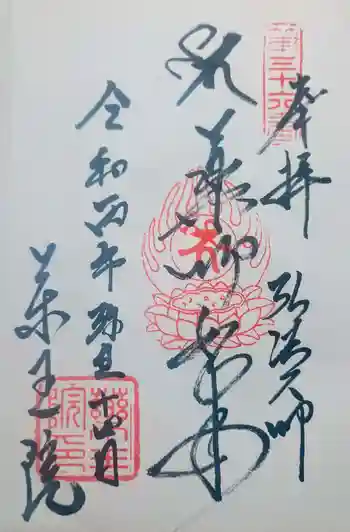 第三十六番
奉拝 弘法大師
薬師如来
令和四年弥生十四日
薬王院
薬王院印